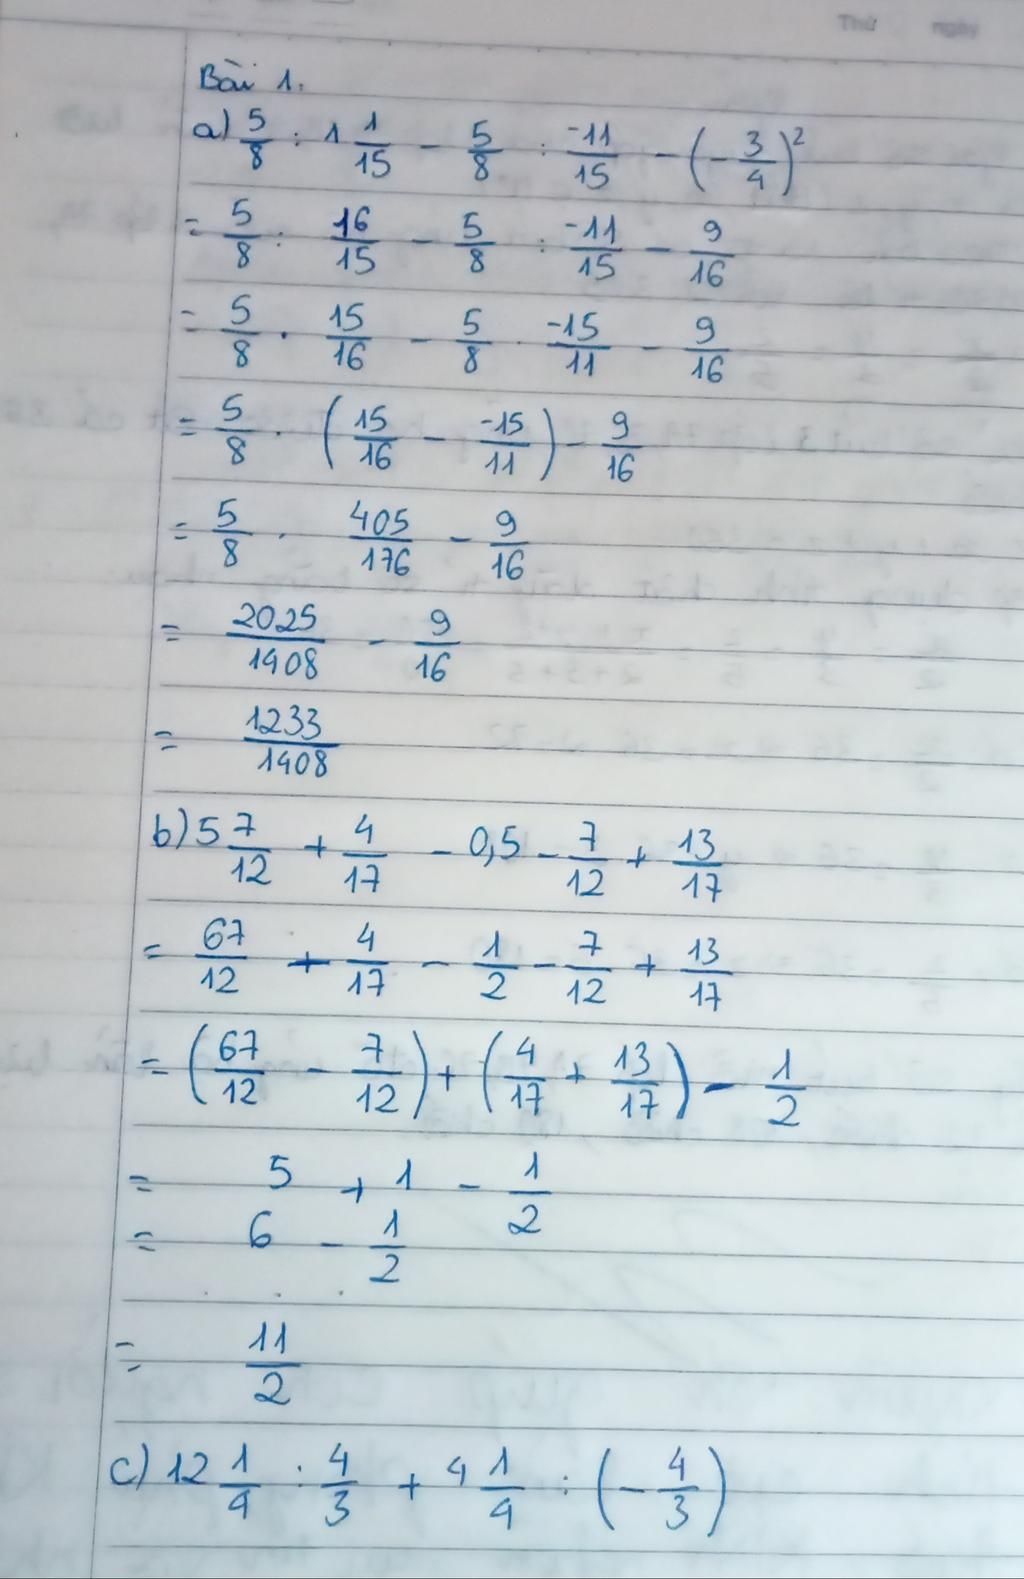 Thứ ngày
Bài 1.
a) 5/8 : 1 1/15 - 5/8 : -11/15 - (-3/4)²
= 5/8 : 16/15 - 5/8 : -11/15 - 9/16
= 5/8 . 15/16 - 5/8 . -15/11 - 9/16
= 5/8 . (15/16 - -15/11) - 9/16
= 5/8 . 405/176 - 9/16
= 2025/1408 - 9/16
= 1233/1408
b) 5 7/12 + 4/17 - 0,5 - 7/12 + 13/17
= 67/12 + 4/17 - 1/2 - 7/12 + 13/17
= (67/12 - 7/12) + (4/17 + 13/17) - 1/2
= 5 + 1 - 1/2
= 6 - 1/2
= 11/2
c) 12 1/4 : 4/3 + 4 1/4 : (-4/3)